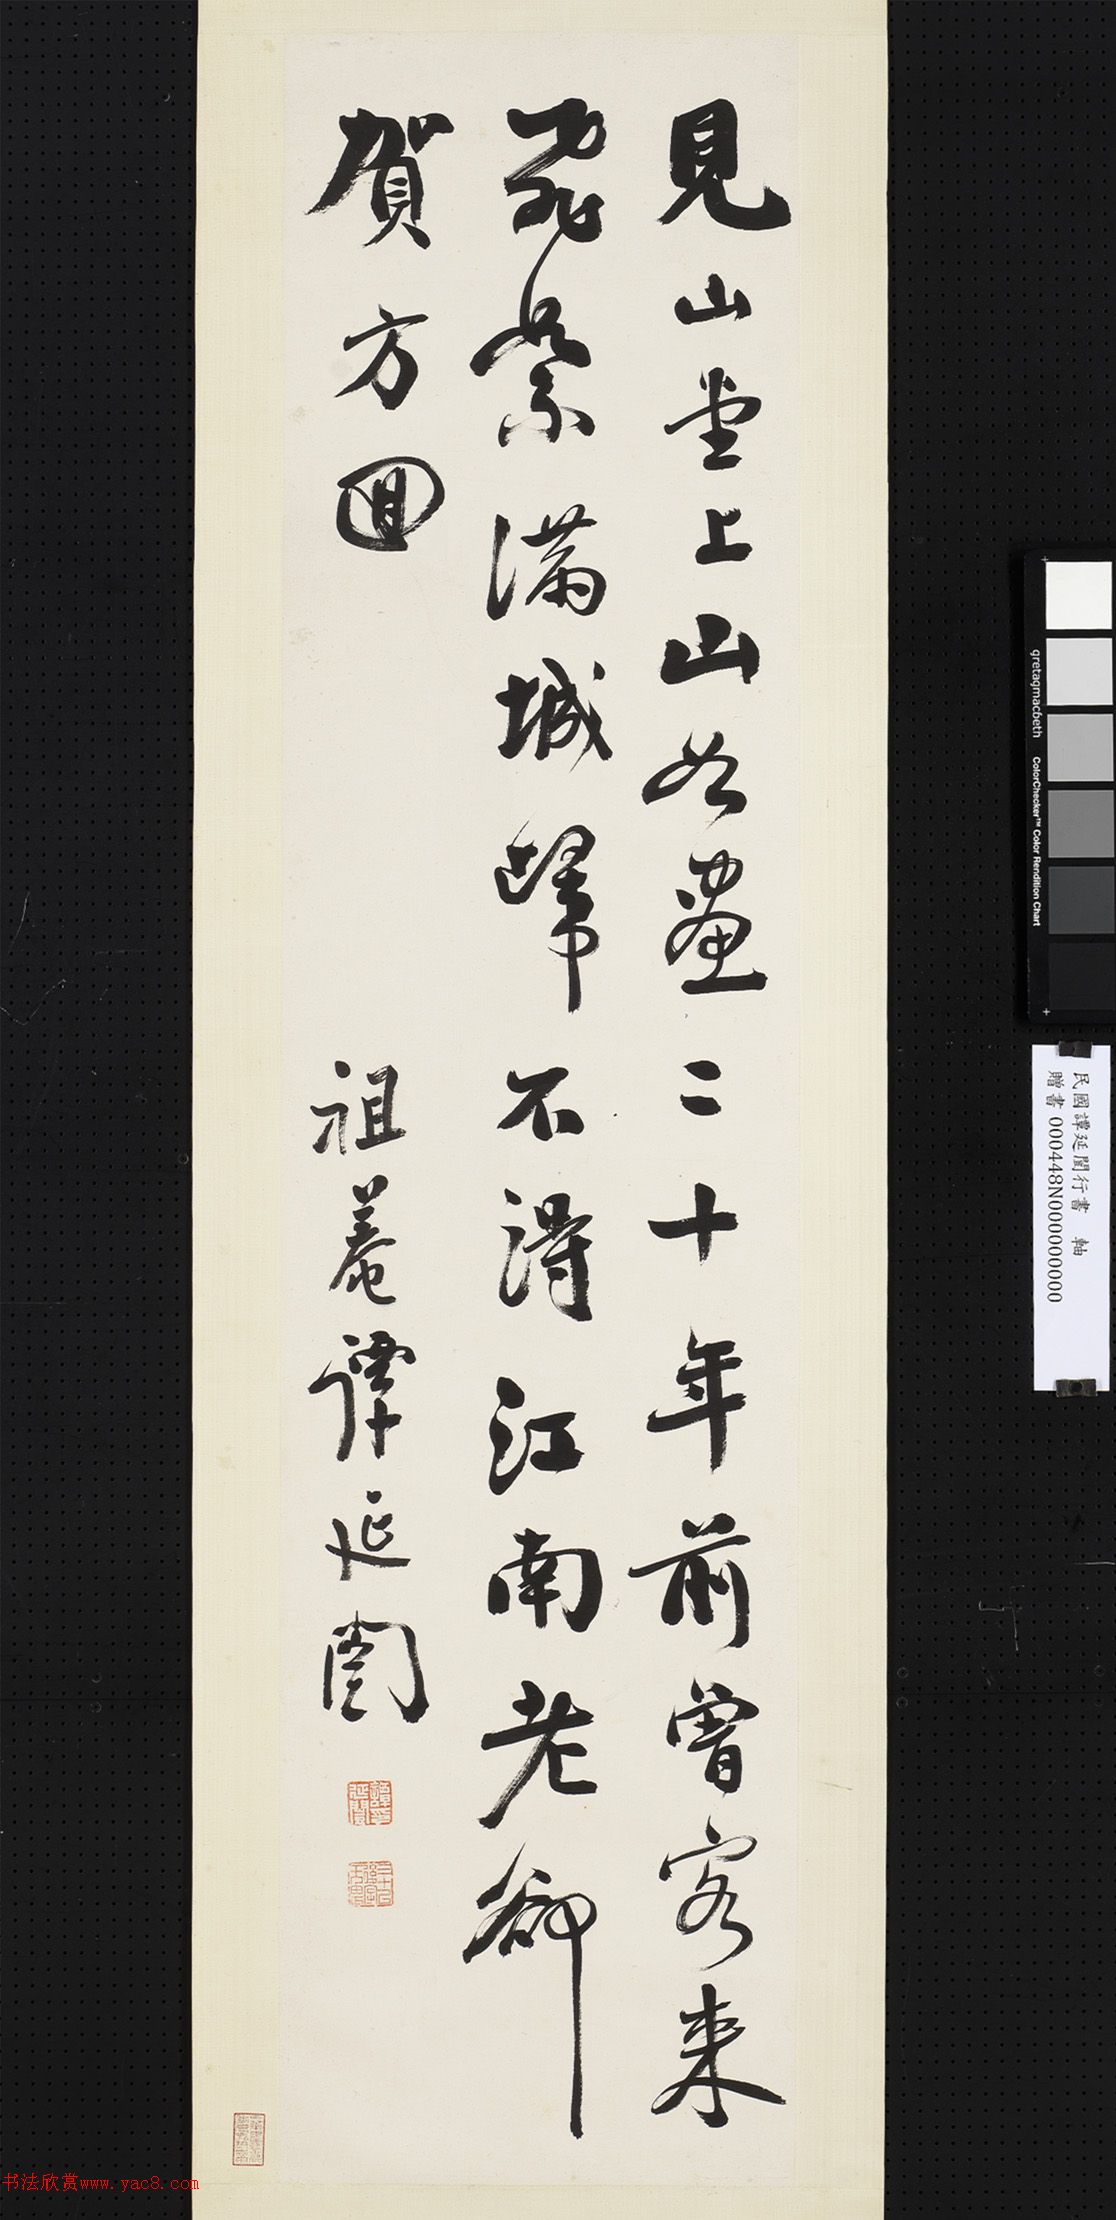 見山堂上山如畫二十年前曾客來
飛絮滿城歸不得江南老卻
賀方回
祖菴譚延闓
譚延闓
民國譚延闓行書 軸
贈書 000448N000000000
gretagmacbeth
ColorChecker™ Color Rendition Chart
书法欣赏www.yac8.com